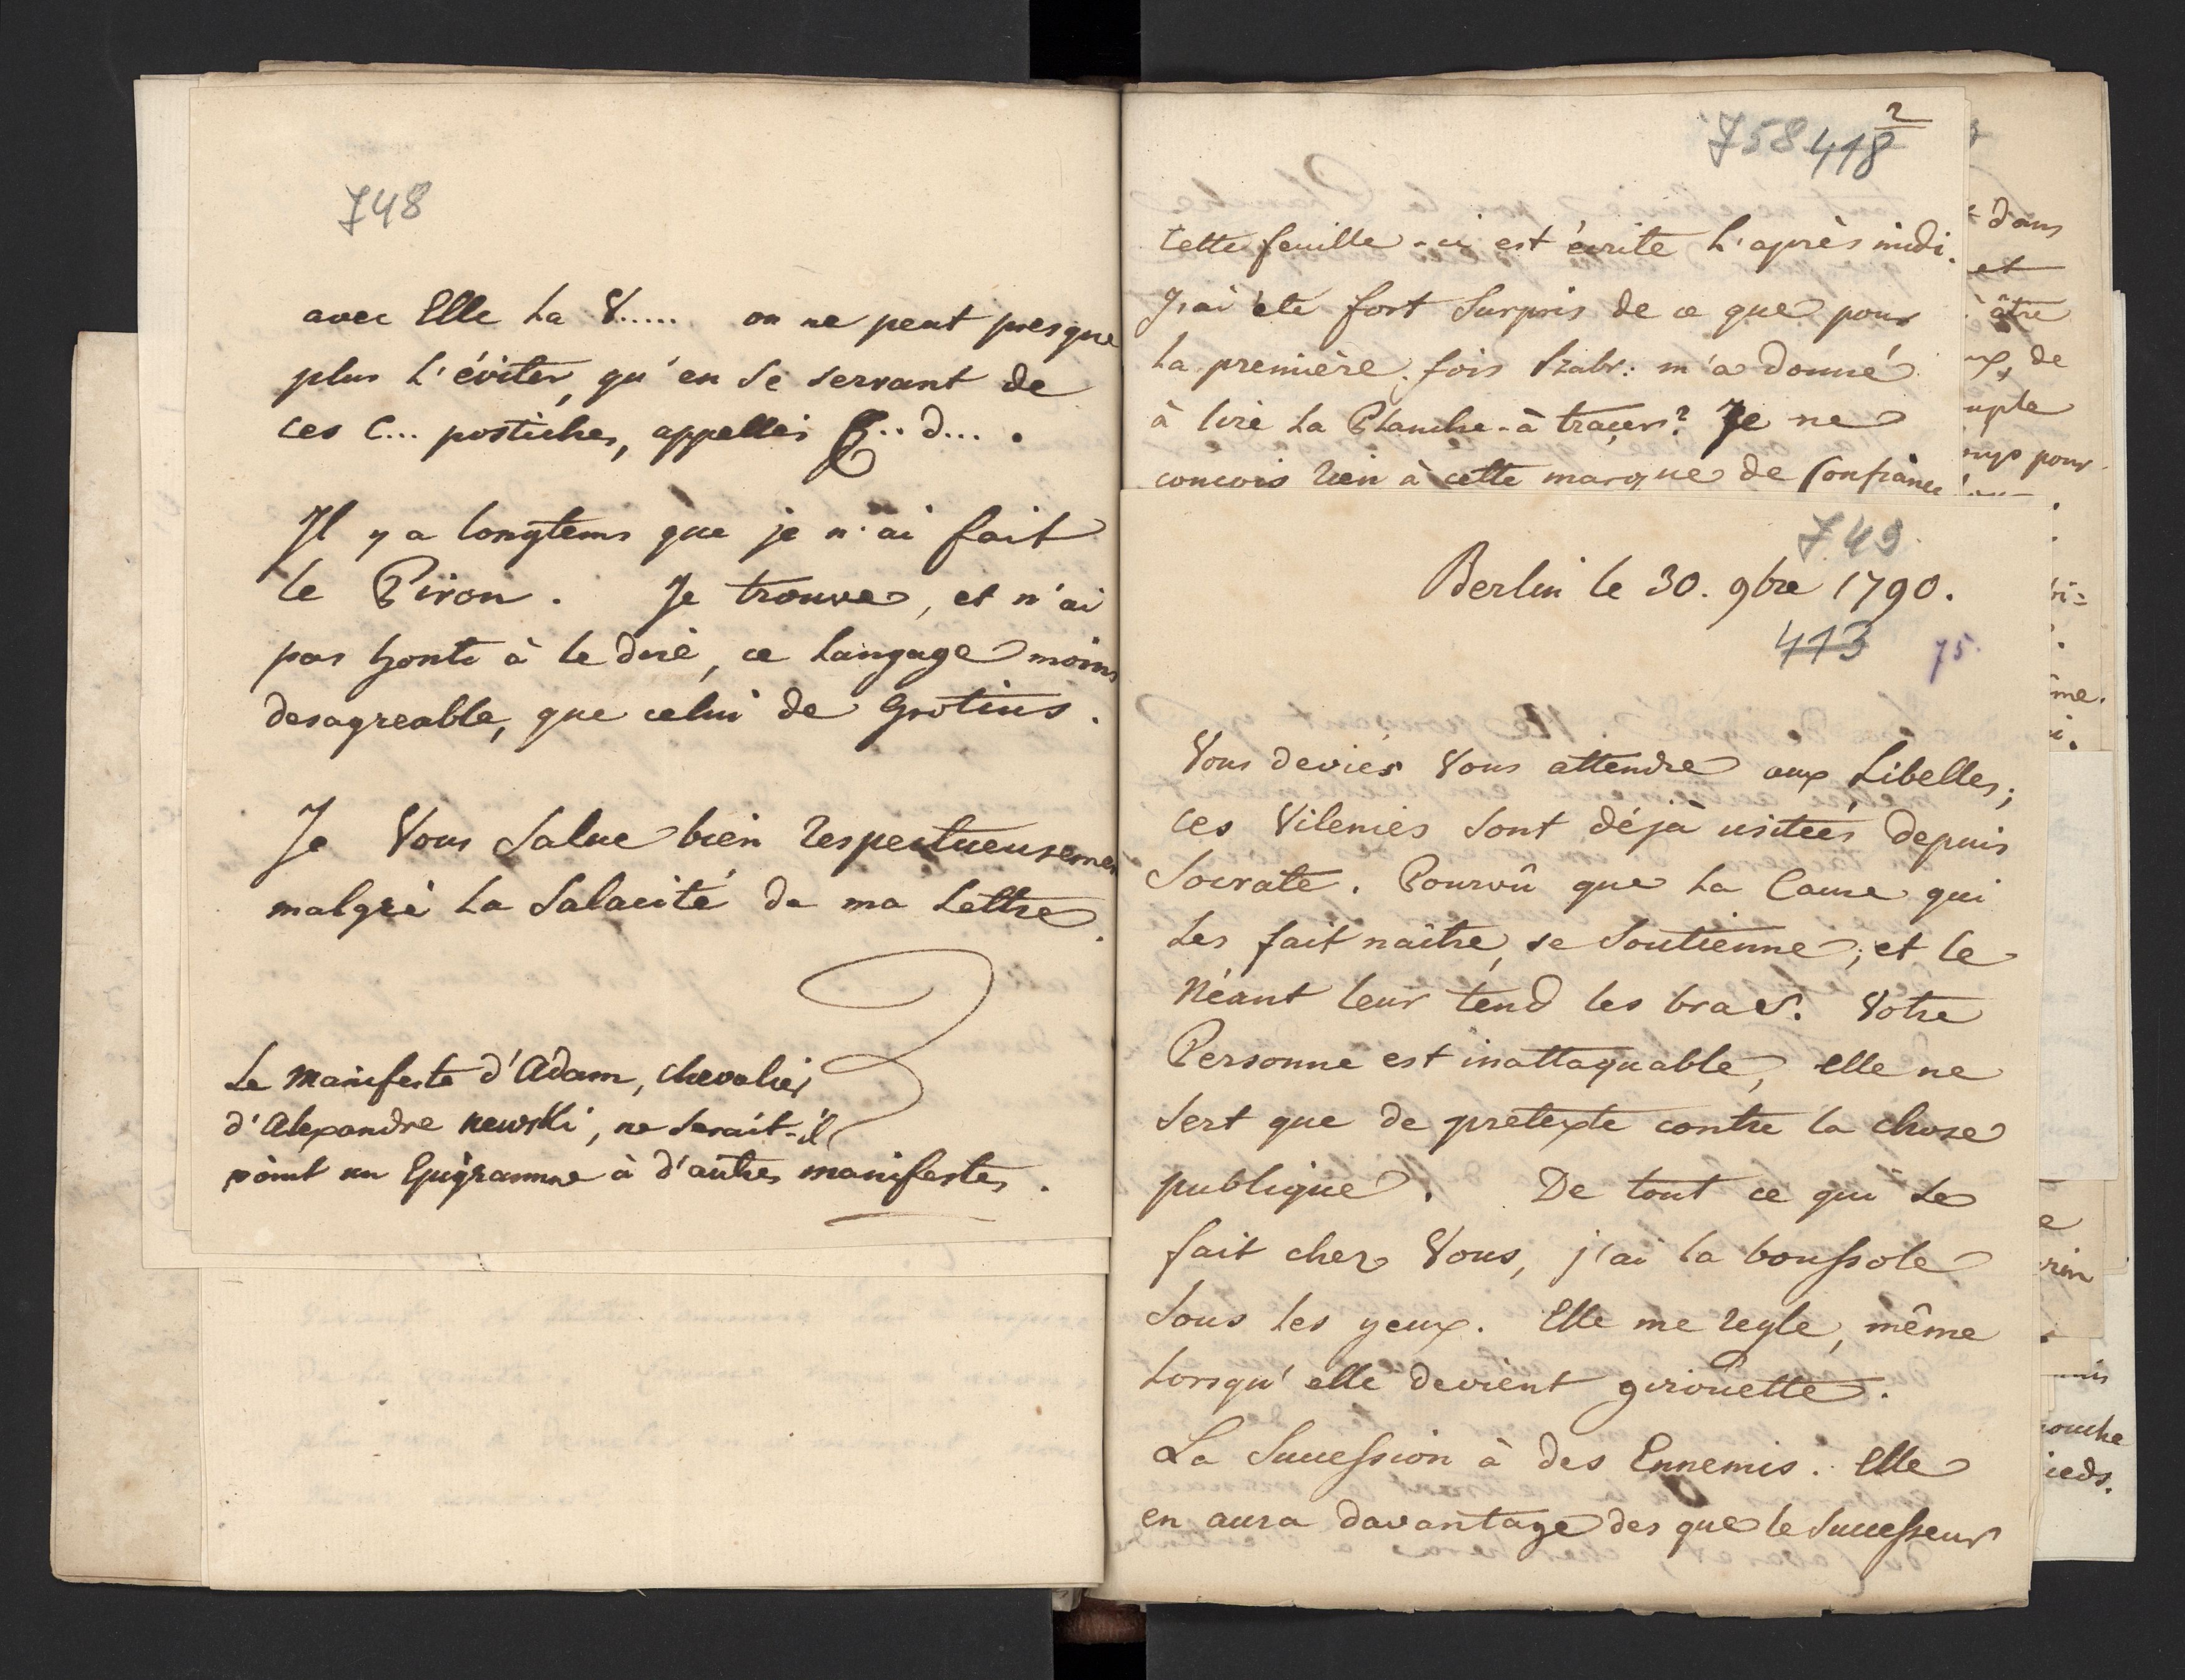 748
avec Elle la V..... on ne peut presque
plus l'éviter, qu'en se servant de
ces C... postiches, appellés G..d... .
Il y a longtems que je n'ai fait
le Piron. Je trouve, et n'ai
pas honte à le dire, ce langage moins
desagreable, que celui de Grotius.
Je Vous Salue bien respectueusemen
malgrè la Salacité de ma Lettre.
Le manifeste d'Adam, chevalier
d'Alexandre newski, ne serait-il
point un Epigramme à d'autres manifestes.
2
758 418
Cette feuille-ci est écrite l'après midi.
J'ai été fort Surpris de ce que pour
la première fois Szabr: m'a donné
à lire la Planche-à traçer? Je ne
concois rien à cette marque de Confiance
749
Berlin le 30. 9bre 1790.
413 75.
Vous deviés Vous attendre aux Libelles;
ces Vilenies sont déjà usitées depuis
Socrate. Pourvû que la Cause qui
les fait naître, se Soutienne; et le
Néant leur tend les bras. Votre
Personne est inattaquable, elle ne
sert que de pretexte contre la chose
publique. De tout ce qui se
fait chez Vous, j'ai la boussole
sous les yeux. Elle me regle, même
lorsqu'elle devient girouette.
La Succession à des Ennemis. Elle
en aura davantage des que le Successeur
dans
et
être
de
uple
pour
ouche
ieds.